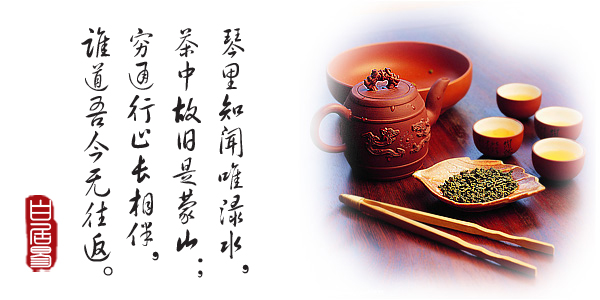 琴里知闻唯渌水，
茶中故旧是蒙山；
穷通行止长相伴，
谁道吾今无往返。
白居易